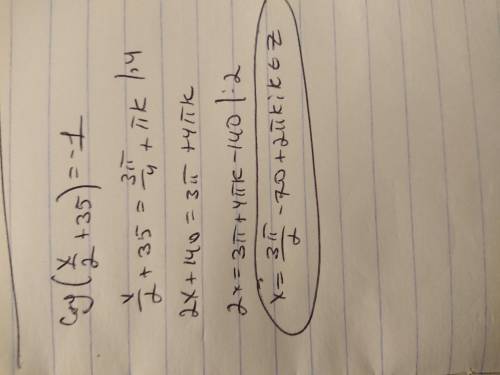 ctg(x/2 + 35) = -1
x/2 + 35 = 3π/4 + πk |·4
2x + 140 = 3π + 4πk
2x = 3π + 4πk - 140 |:2
x = 3π/2 - 70 + 2πk; k ∈ Z